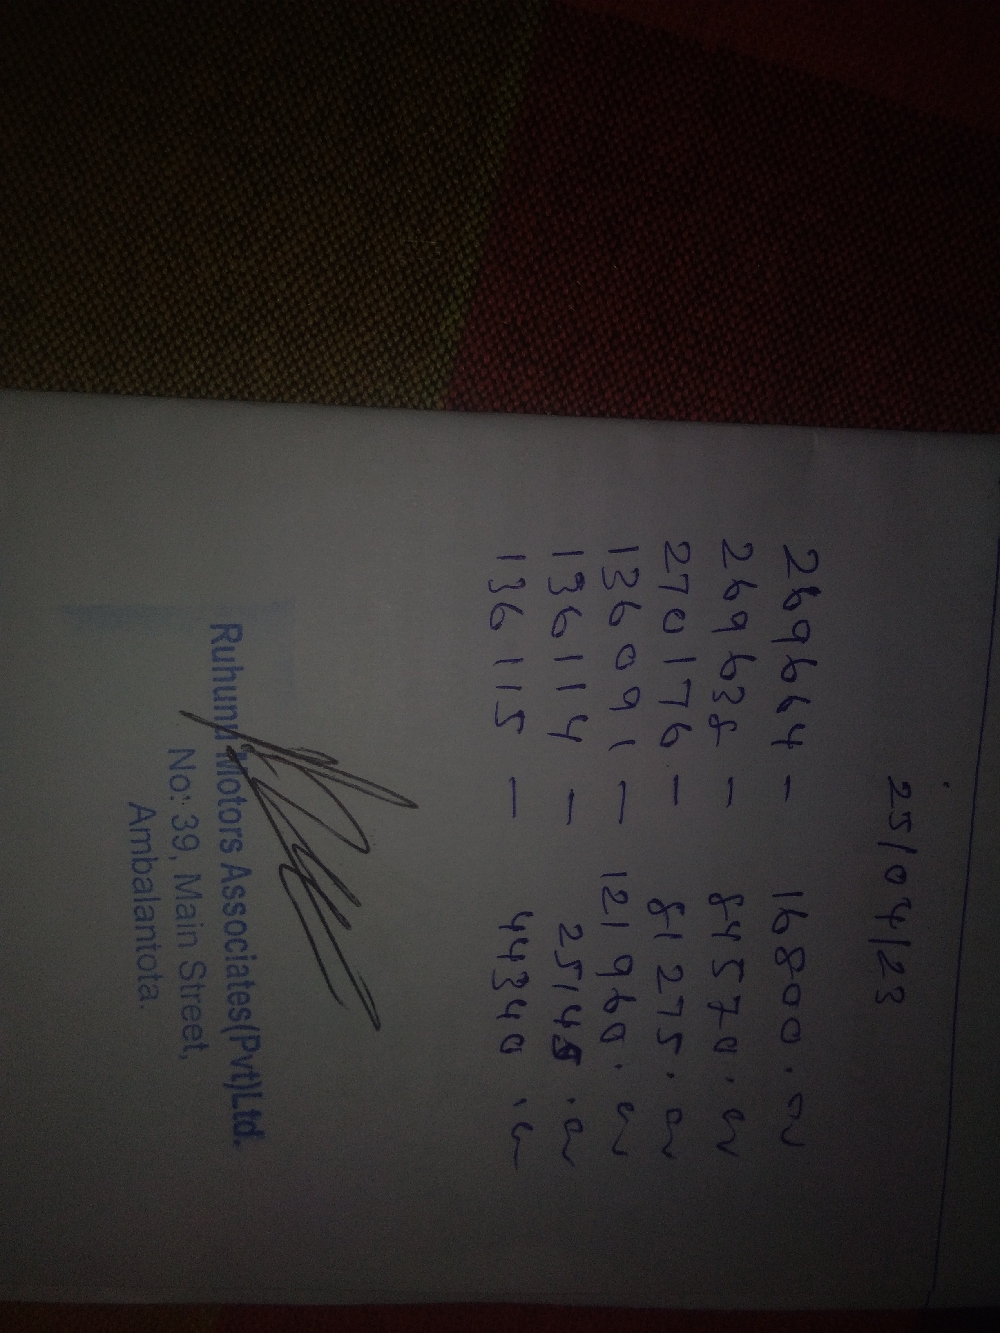 25/04/23
269664 - 16800.00
269638 - 84570.00
270176 - 81275.00
136091 - 121960.00
136114 - 25145.00
136115 - 44340.00
Ruhunu Motors Associates(Pvt)Ltd.
No: 39, Main Street,
Ambalantota.